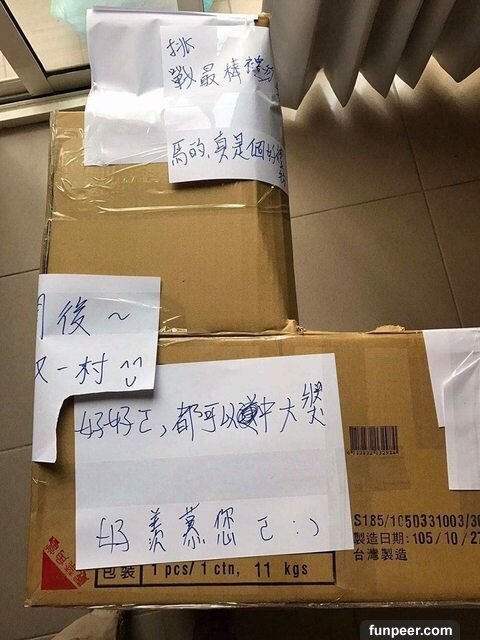 挑
戰最棒禮
馬的,真是個好禮
月後~
又一村
好好ㄛ,都可以中大獎
好羨慕您ㄛ:)
S185/1050331003/30
製造日期:105/10/27
台灣製造
包裝 1 pcs/1 ctn, 11 kgs
funpeer.com